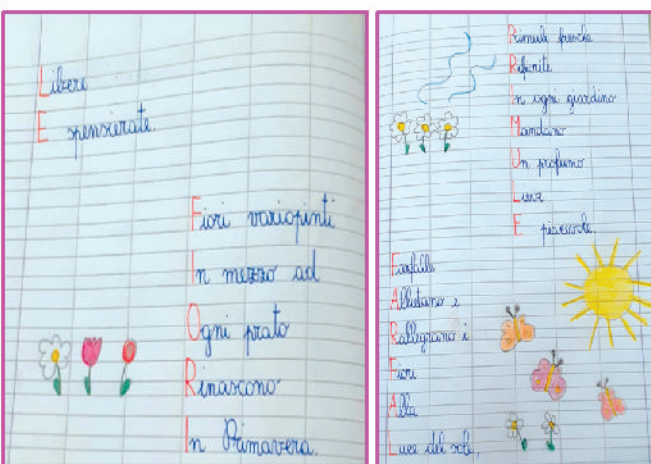 Libere
E spensierate.
Fiori variopinti
In mezzo ad
Ogni prato
Rinascono
In Primavera.
Primule fresche
Rifiorite
In ogni giardino
Mandano
Un profumo
Lieve
E piacevole.
Farfalle
Allietano e
Rallegrano i
Fiori
Alla
Luce del sole.